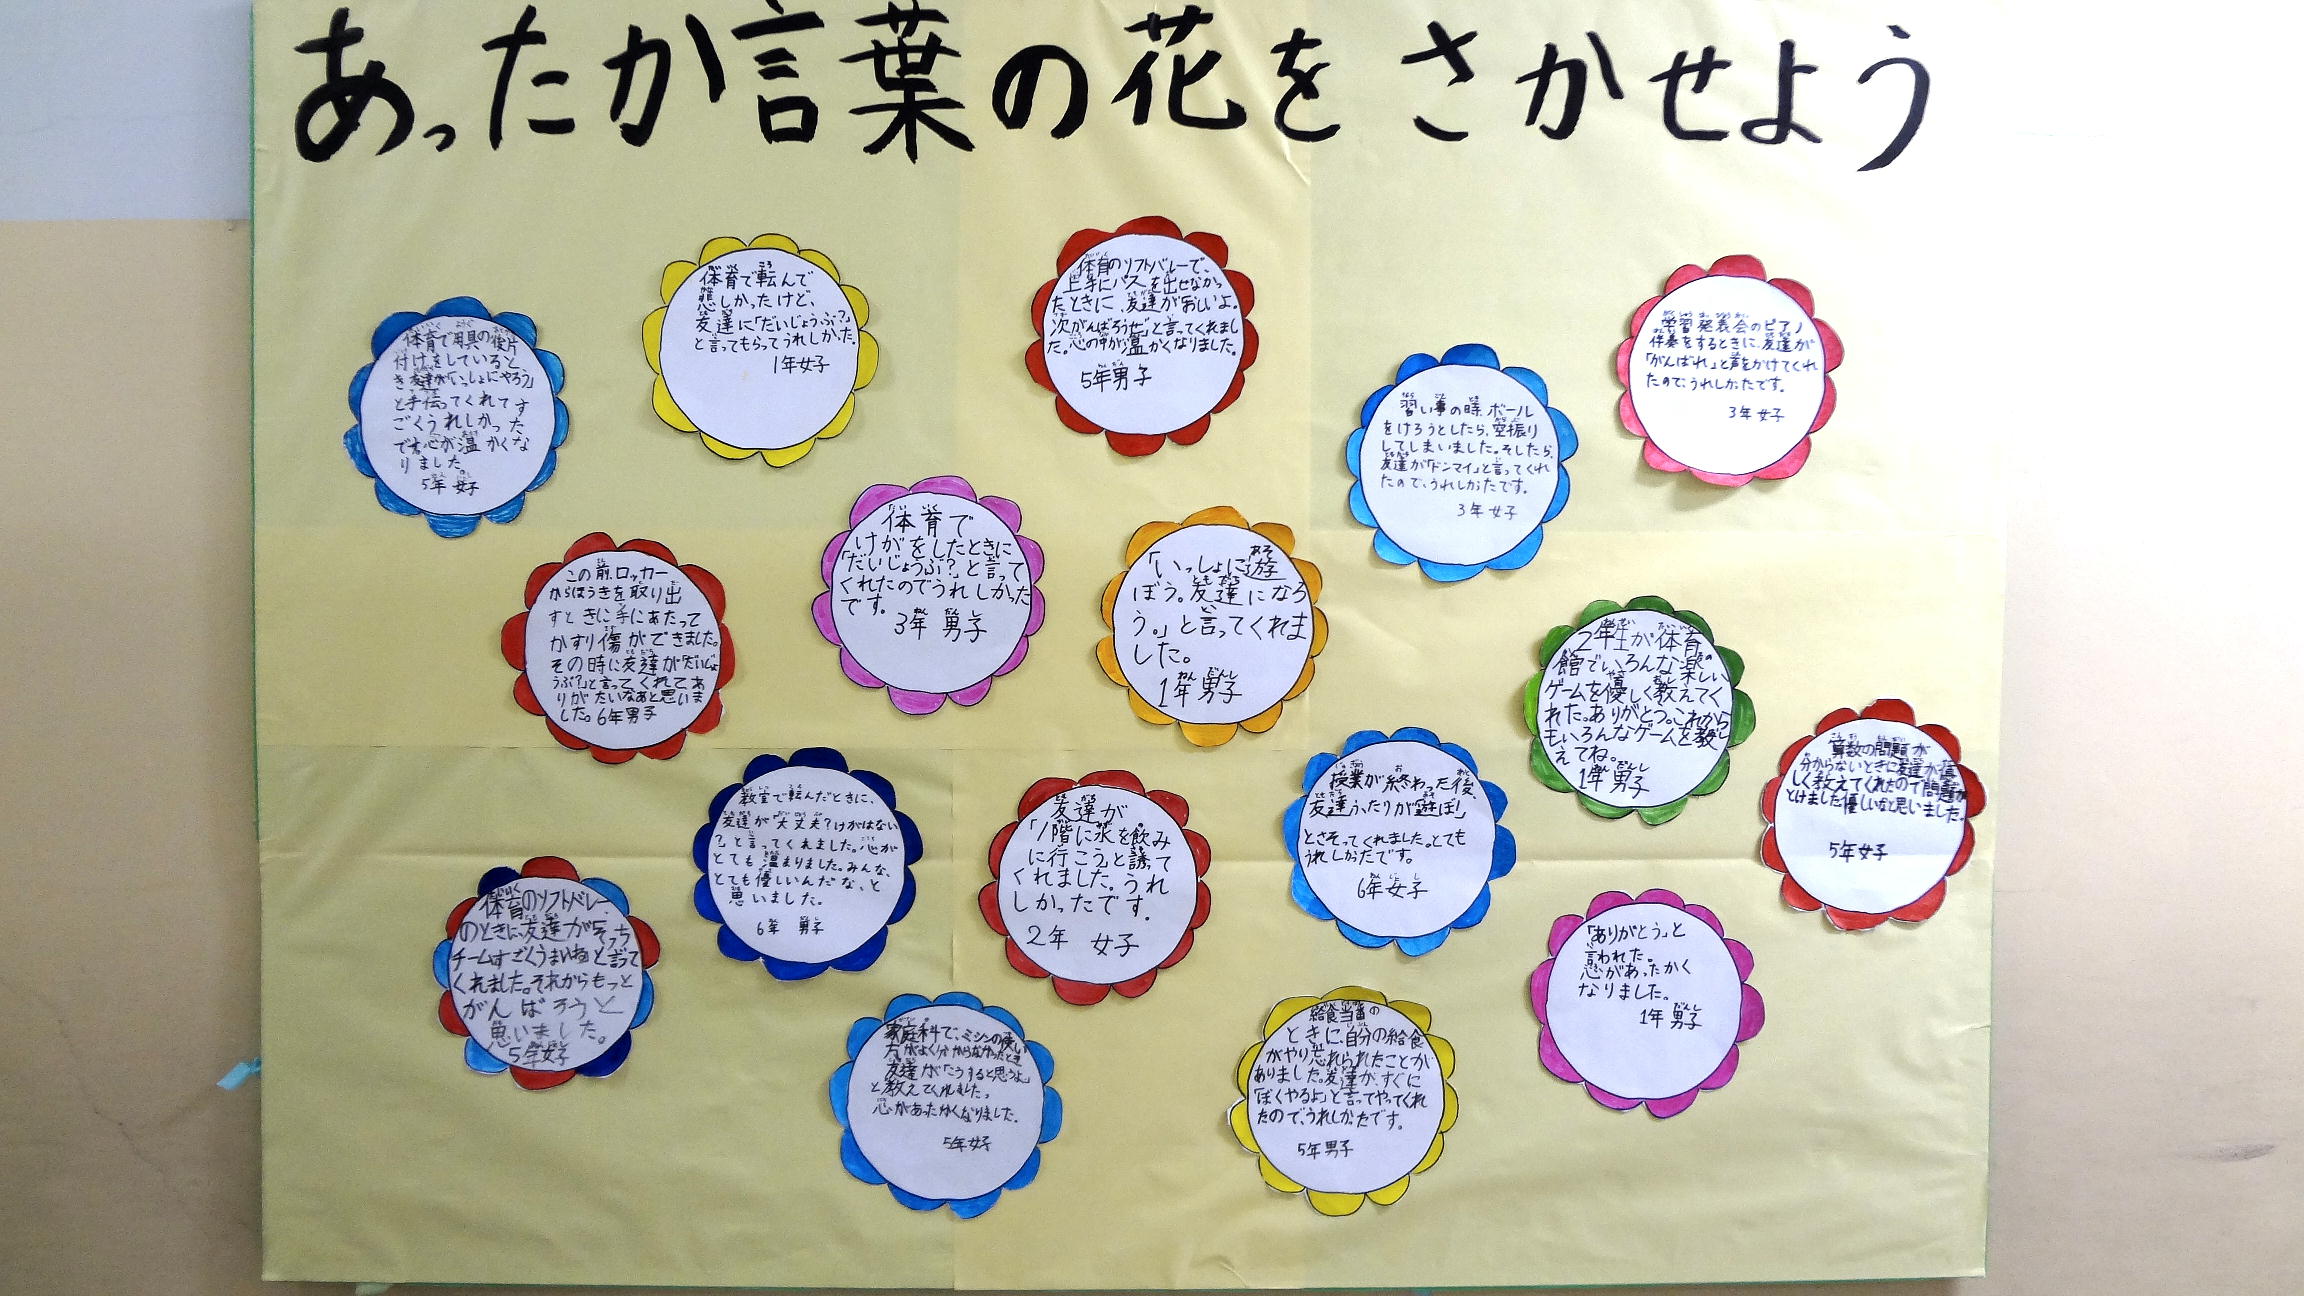 あったか言葉の花を さかせよう
体育で用具の後片
付けをしていると
き友達が「いっしょにやろう」
と手伝ってくれてす
ごくうれしかった
です。心が温かくな
りました。
5年 女子
体育で転んで
悲しかったけど、
友達に「だいじょうぶ?」
と言ってもらってうれしかった。
1年女子
体育のソフトバレーで、
上手にパスを出せなかっ
たときに、友達が「おしいよ。
次がんばろうぜ」と言ってくれまし
た。心の中が温かくなりました。
5年男子
学習発表会のピアノ
伴奏をするときに、友達が
「がんばれ」と声をかけてくれ
たので、うれしかったです。
3年女子
習い事の時、ボール
をけろうとしたら、空振り
してしまいました。そしたら、
友達が「ドンマイ」と言ってくれ
たので、うれしかったです。
3年女子
この前、ロッカー
からほうきを取り出
すときに手にあたって
かすり傷ができました。
その時に友達が「だいじょ
うぶ?」と言ってくれてあ
りがたいなあと思いま
した。6年男子
体育で
けがをしたときに
「だいじょうぶ?」と言って
くれたのでうれしかった
です。
3年 男子
「いっしょに遊
ぼう。友達になろ
う。」と言ってくれま
した。
1年 男子
2年生が体育
館でいろんな楽しい
ゲームを優しく教えてく
れた。ありがとう。これから
もいろんなゲームを教
えてね。
1年男子
算数の問題が
分からないときに友達が優
しく教えてくれたので問題が
とけました優しいなと思いました。
5年女子
教室で転んだときに、
友達が「大丈夫?けがはない
?」と言ってくれました。心が
とても温まりました。みんな、
とても優しいんだな、と
思いました。
6年 男子
友達が
「1階に水を飲み
に行こう」と誘って
くれました。うれ
しかったです。
2年 女子
授業が終わった後、
友達ふたりが「遊ぼ!」
とさそってくれました。とても
うれしかったです。
6年女子
体育のソフトバレー
のときに、友達が「そっち
チームすごくうまいね」と言って
くれました。それからもっと
がんばろうと
思いました。
5年女子
家庭科で、ミシンの使い
方がよく分からなかったとき
友達が「こうすると思うよ」
と教えてくれました。
心があったかくなりました。
5年女子
給食当番の
ときに、自分の給食
がやり忘れられたことが
ありました。友達が、すぐに
「ぼくやるよ」と言ってやってくれ
たので、うれしかったです。
5年男子
「ありがとう」と
言われた。
心があったかく
なりました。
1年 男子